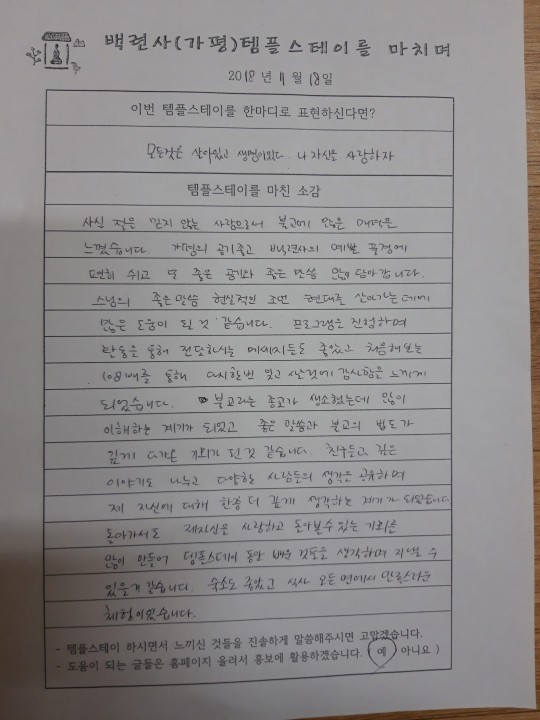 백련사(가평)템플스테이를 마치며
2018년 11월 18일
이번 템플스테이를 한마디로 표현하신다면?
모든것은 살아있고 생명이있다. 나 자신을 사랑하자
템플스테이를 마친 소감
사실 저는 믿지 않는 사람으로서 불교에 많은 매력을
느꼈습니다. 가평의 공기좋고 백련사의 예쁜 풍경에
편히 쉬고 또 좋은 공기와 좋은 말씀 많이 담아갑니다.
스님의 좋은말씀 현실적인 조언 현대를 살아가는데에
많은 도움이 될 것 같습니다. 프로그램을 진행하며
활동을 통해 전달하시는 메세지들도 좋았고 처음해보는
108배를 통해 다시한번 잊고 산것에 감사함을 느끼게
되었습니다. 불교라는 종교가 생소했는데 많이
이해하는 계기가 되었고 좋은 말씀과 불교의 법도가
깊게 다가온 기회가 된것 같습니다. 친구들과 깊은
이야기도 나누고 다양한 사람들의 생각을 공유하며
제 자신에 대해 한층 더 깊게 생각하는 계기가 되었습니다
돌아가서도 제자신을 사랑하고 돌아볼수 있는 기회를
많이 만들어 템플스테이 동안 배운 것들을 생각하며 지낼 수
있을거 같습니다. 숙소도 좋았고 식사 모든 면에서 만족스러운
체험이었습니다.
- 템플스테이 하시면서 느끼신 것들을 진솔하게 말씀해주시면 고맙겠습니다.
- 도움이 되는 글들은 홈페이지 올려서 홍보에 활용하겠습니다. ( 예 아니요 )